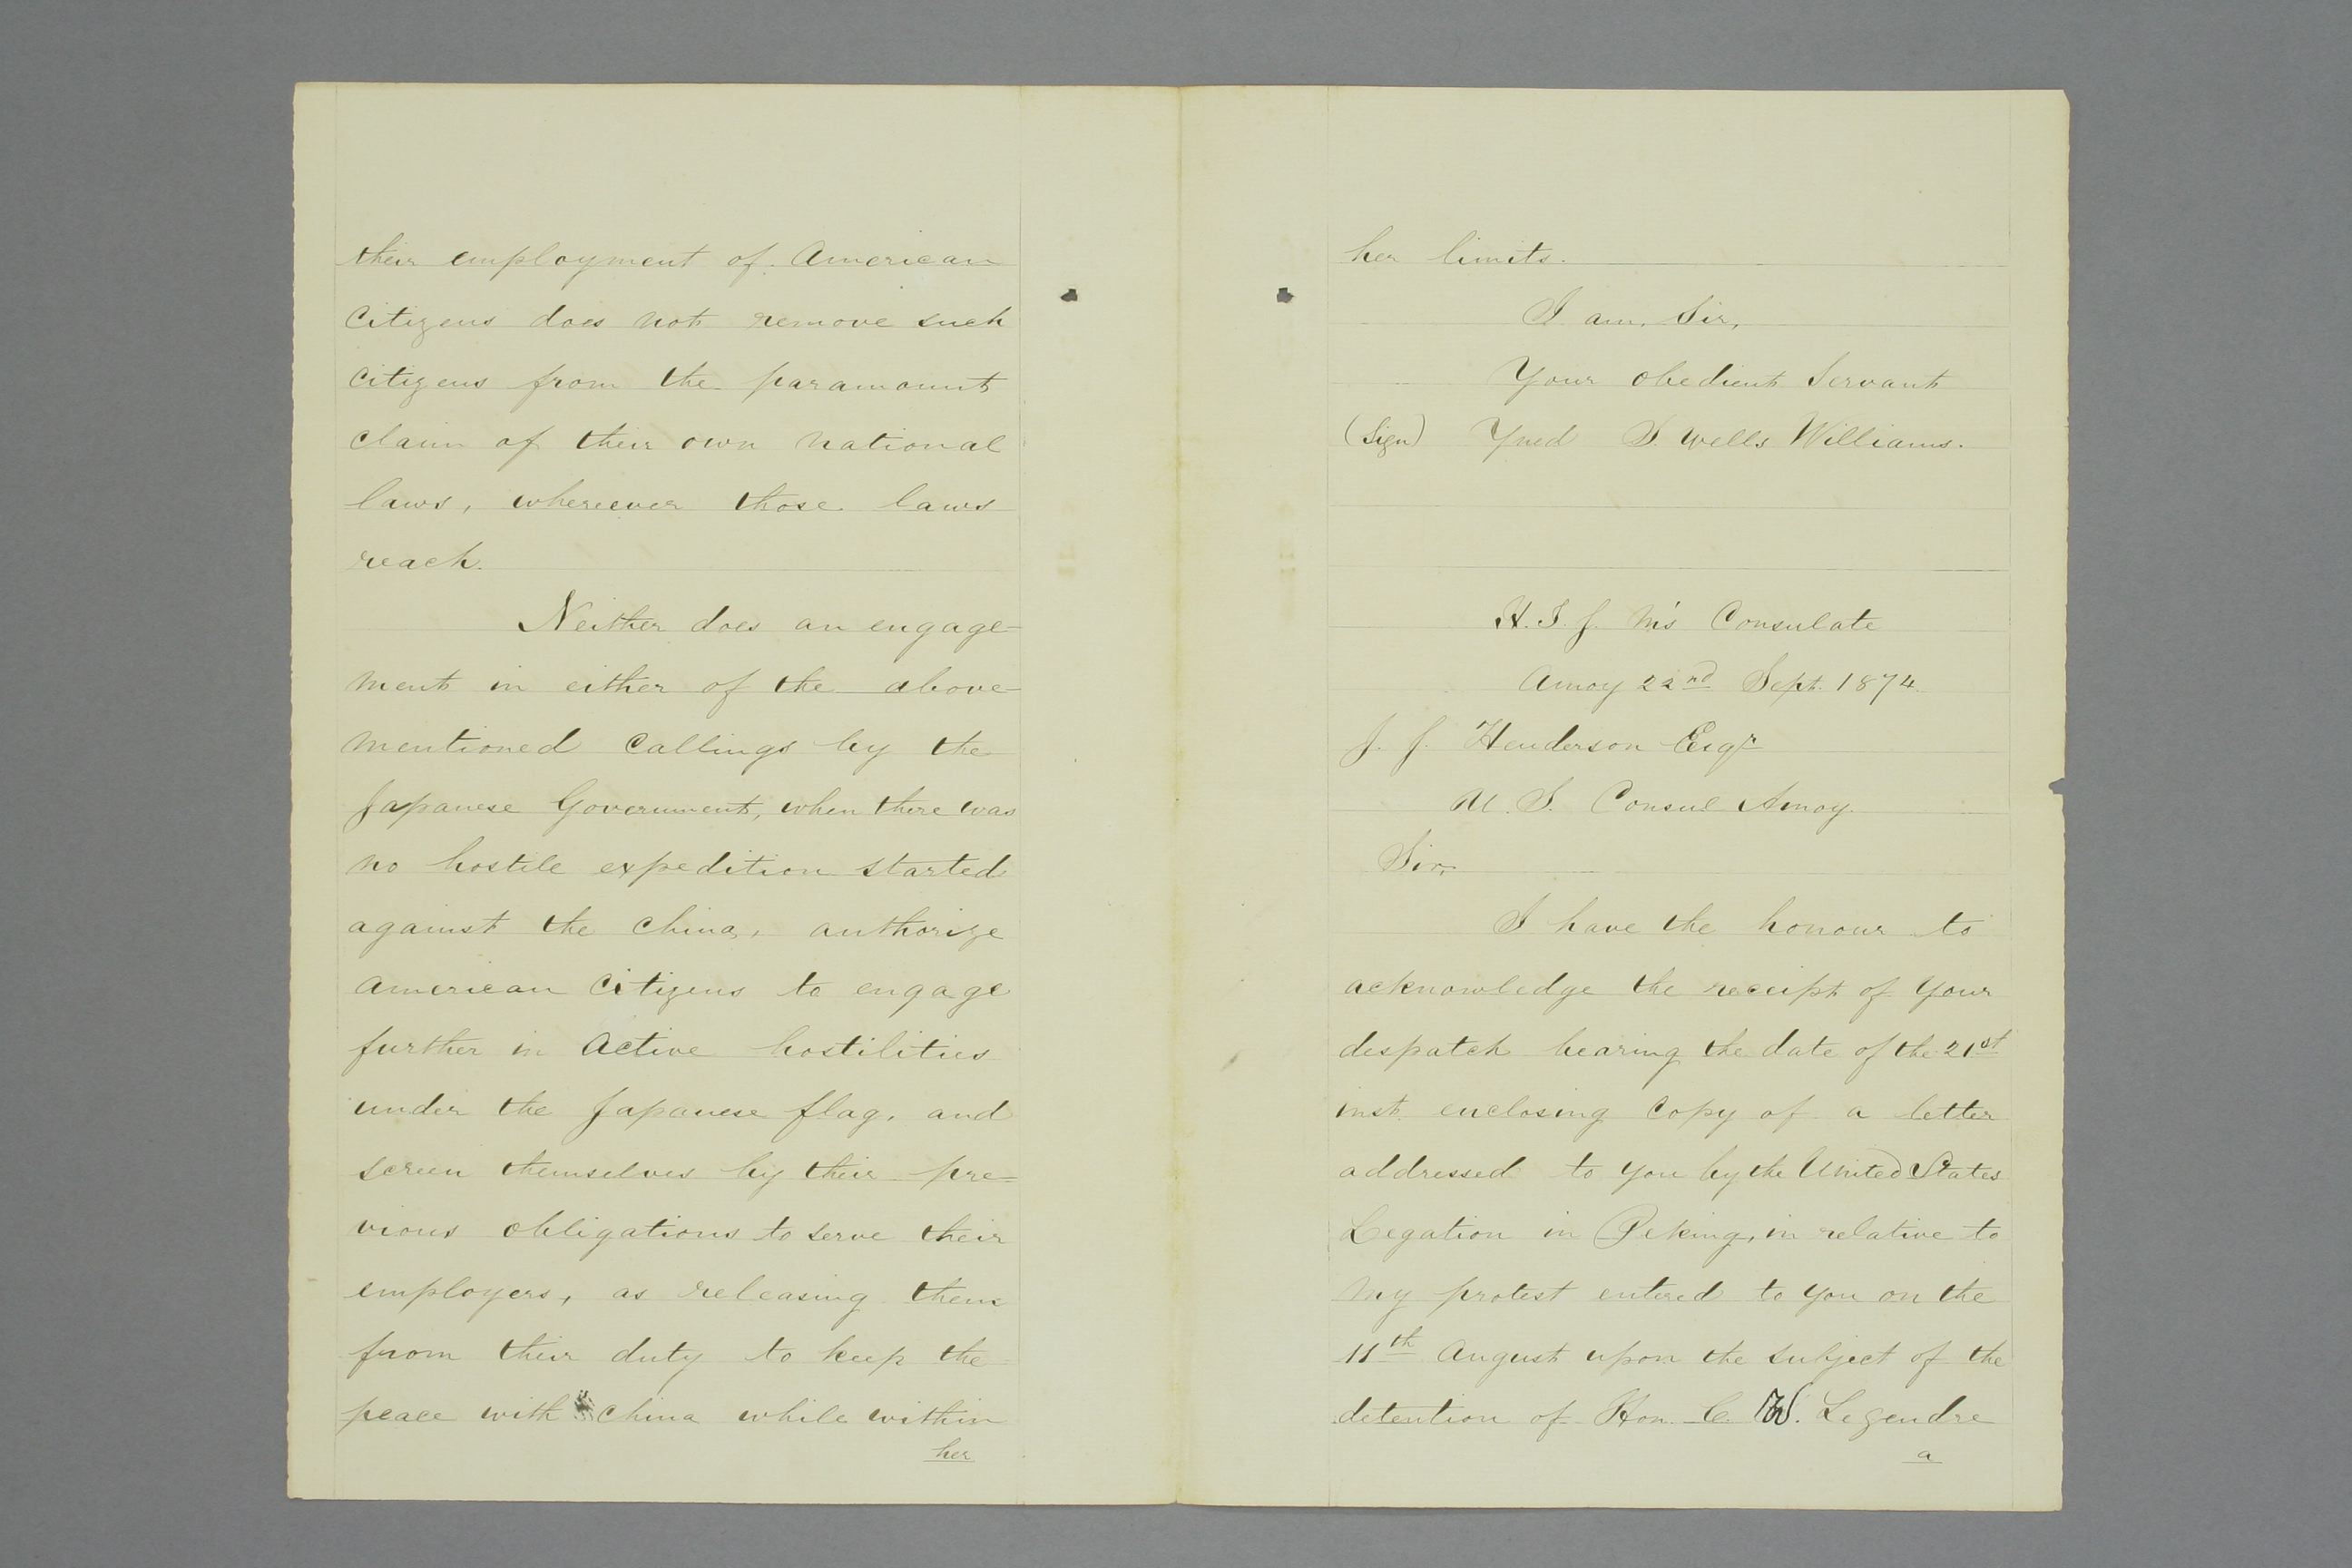 their employment of American
Citizens does not remove such
Citizens from the paramount
Claim of their own national
laws, whereever those laws
reach.
Neither does an engage-
ment in either of the above
mentioned Callings by the
Japanese Government, when there was
no hostile expedition started
against the China, authorize
American Citizens to engage
further in Active hostilities
under the Japanese flag, and
screen themselves by their pre=
vious obligations to serve their
employers, as releasing them
from their duty to keep the
peace with China while within
her
her limits.
I am, Sir,
Your obedient Servant
(Sign) S. Wells Williams.
H. I. J. M's Consulate
Amoy 22nd Sept. 1874
J. J. Henderson Esqr
U. S. Consul Amoy.
Sir,
I have the honour to
acknowledge the receipt of Your
despatch bearing the date of the 21st
inst. enclosing Copy of a letter
addressed to you by the United States
Legation in Peking, in relative to
my protest entered to you on the
11th August upon the subject of the
detention of Hon. C. W. Legendre
a